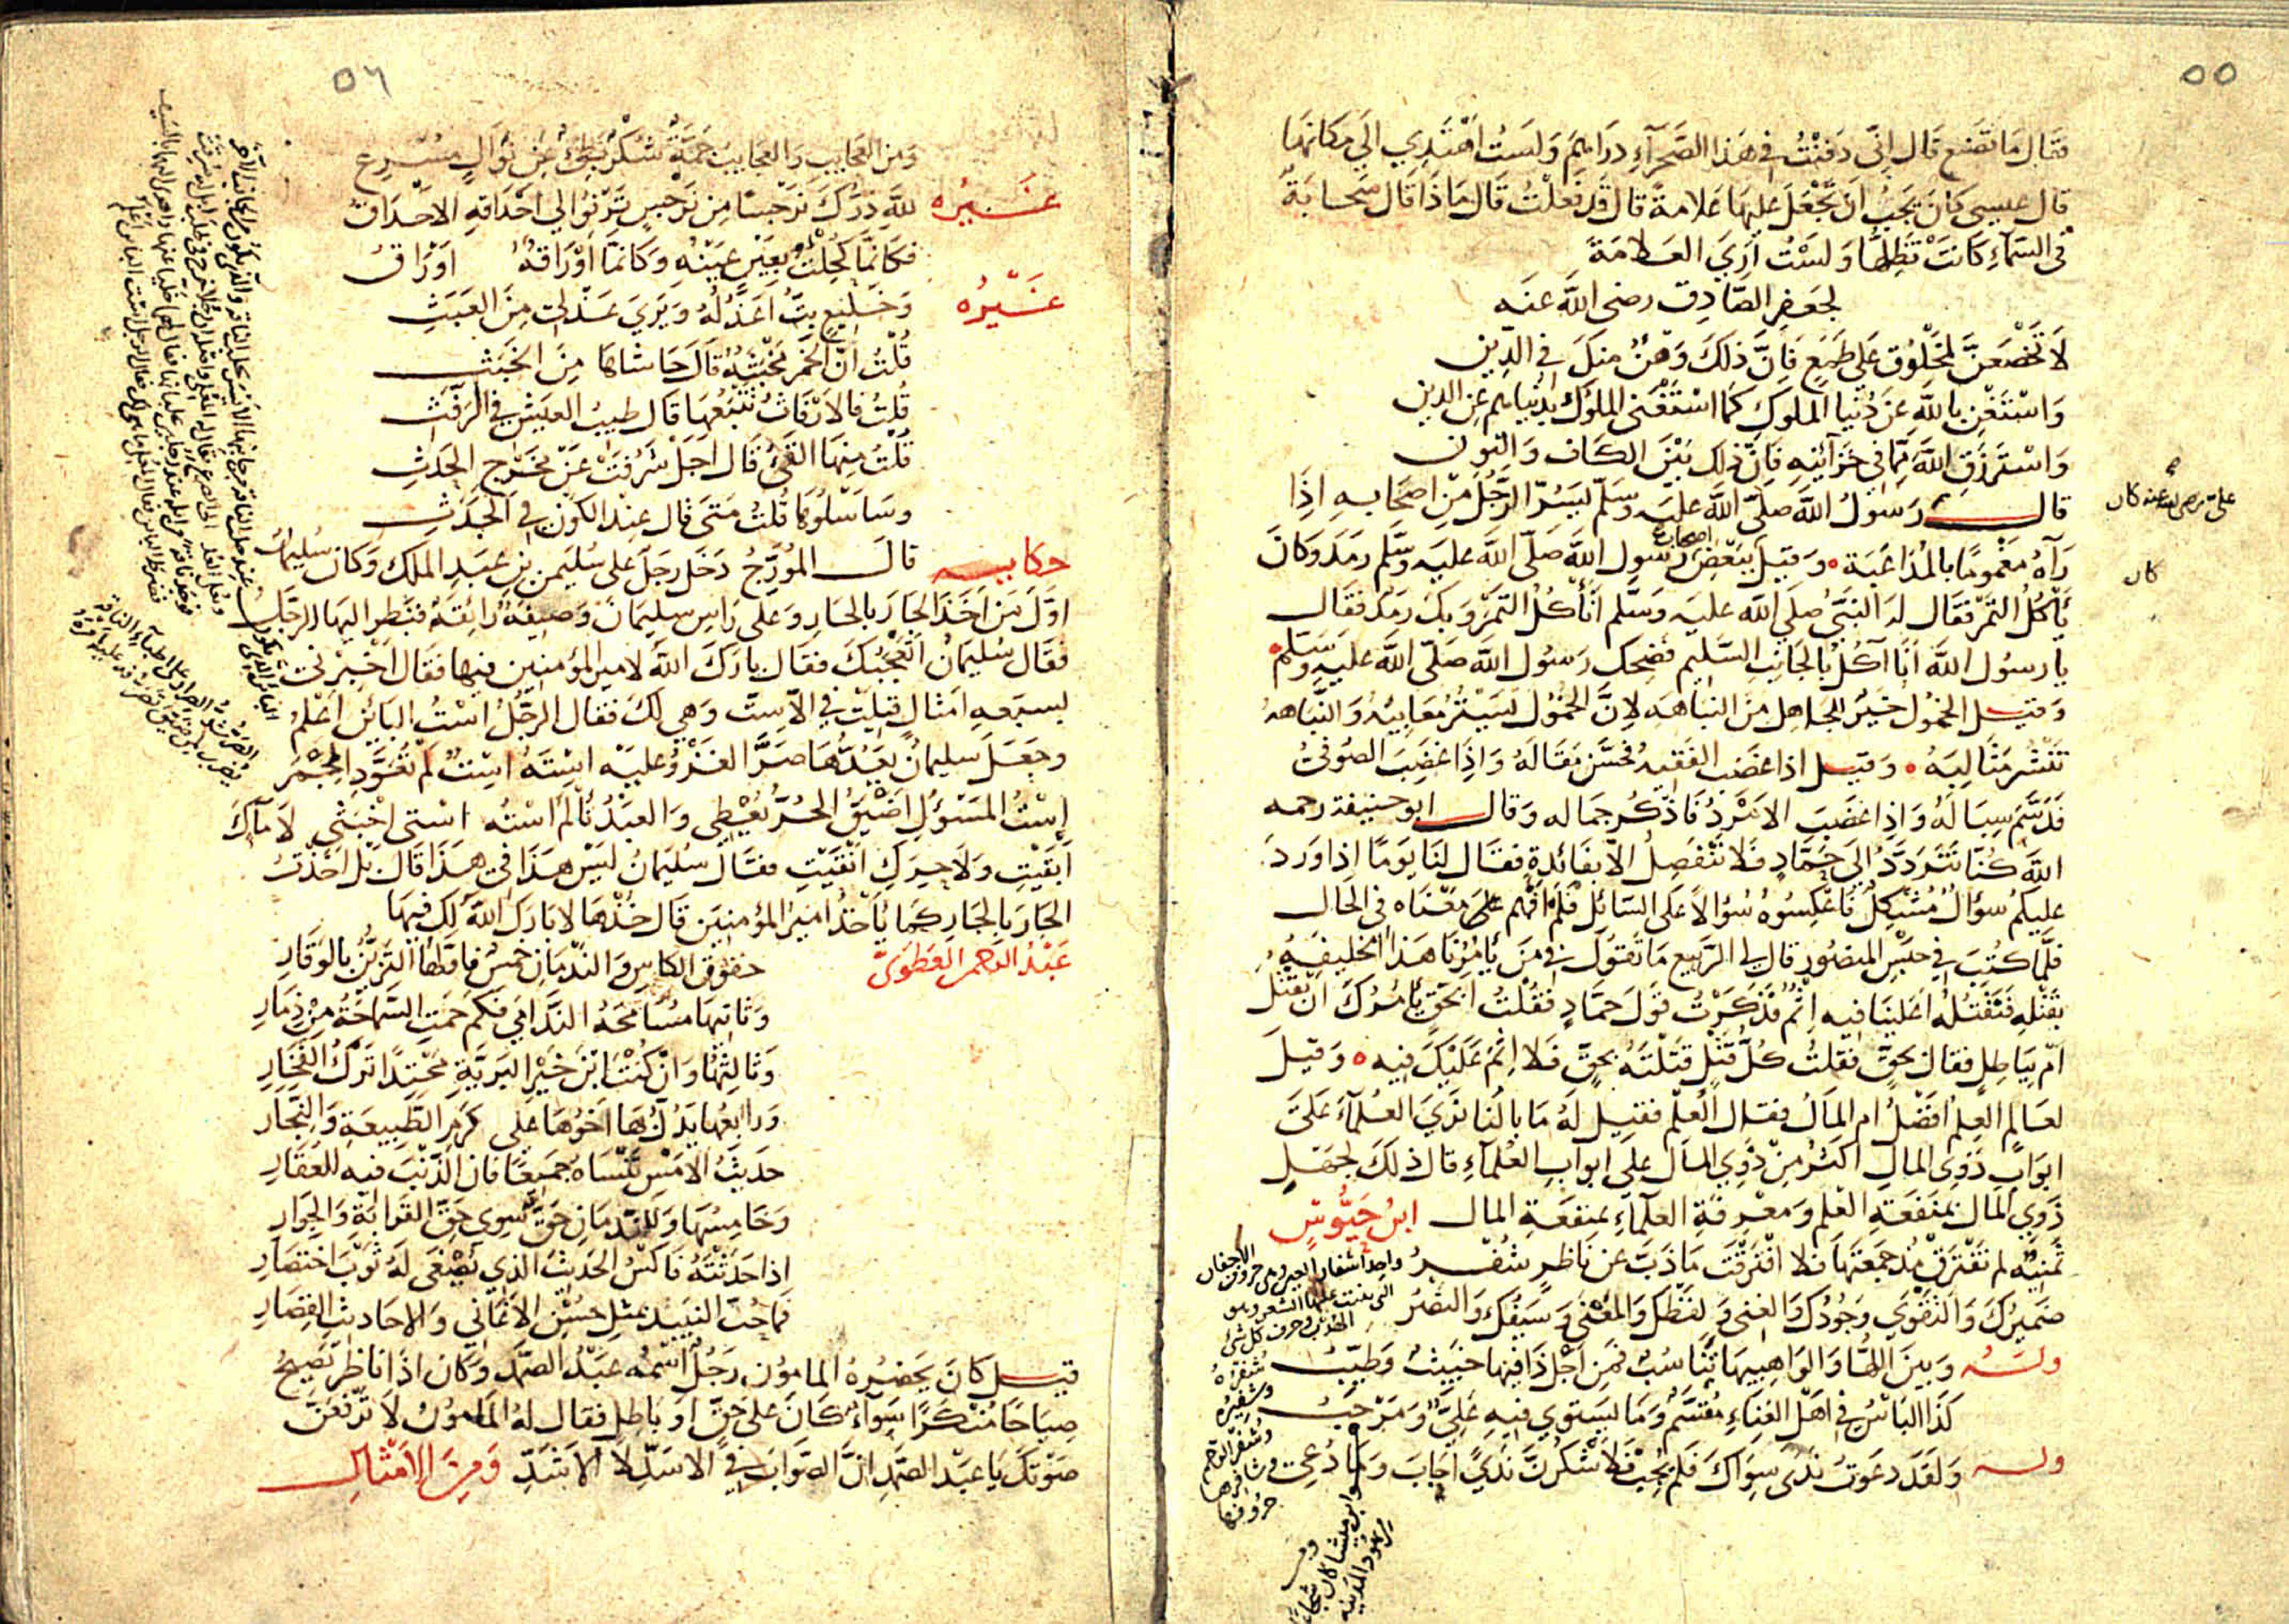 ٥٥
فقال ما تصنع قال اني دفنت في هذا الصحرآء دراهم ولست اهتدي الى مكانها
قال عيسى كان يجب ان تجعل عليها علامة قال قد فعلت قال ماذا قال سحابة
في السماء كانت تظلها ولست ارى العلامة
لجعفر الصادق رضى الله عنه
لا تخضعن لمخلوق على طمع فان ذلك وهن منك في الدين
واستغن بالله عن دنيا الملوك كما استغنى الملوك بدنياهم عن الدين
واسترزق الله مما في خزآئنه فان ذلك بين الكاف والنون
قال رسول الله صلى الله عليه وسلم ليسر الرجل من اصحابه اذا
رآه مغموما بالمداعبة وقيل لبعض اصحاب رسول الله صلى الله عليه وسلم رمد وكان
يأكل التمر فقال له النبي صلى الله عليه وسلم أتأكل التمر وبك رمد فقال
يا رسول الله أنا آكل بالجانب السليم فضحك رسول الله صلى الله عليه وسلم
وقيل الخمول خير للجاهل من النباهه لان الخمول يستر معايبه والنباهه
تنشر مثالبه وقيل اذا غضب الفقيه فحسن مقاله واذا غضب الصوفي
فدسم سباله واذا غضب الامرد فاذكر جماله وقال ابو حنيفة رحمه
الله كنا نتردد الى حماد فلا ننفصل الا بفائدة فقال لنا يوما اذا ورد
عليكم سؤال مشكل فاعكسوه سؤالا على السائل فلم افهم على معناه في الحال
فلما كنت في حبس المنصور قال لي الربيع ما تقول في من يأمرنا هذا الخليفه
بقتله فنقتله أعلينا فيه اثم فذكرت قول حماد فقلت أبحق يأمرك ان تقتل
ام بباطل فقال بحق فقلت كل قتل قتلته بحق فلا اثم عليك فيه وقيل
لعالم العلم افضل ام المال فقال العلم فقيل له ما بالنا نرى العلمآء على
ابواب ذوى المال اكثر من ذوي المال على ابواب العلمآء قال ذلك لجهل
ذوي المال بمنفعة العلم ومعرفة العلمآء بمنفعة المال ابن حيوس
ثمنيه لم تفترق مذ جمعتها فلا افترقت ما ذب عن ناظر شفر
ضميرك والتقوى وجودك والغنى ولفظك والمعنى وسيفك والنصر
وله وبين اللها والواهبيها تناسب فمن اجل ذا فيها خبيث وطيب
كذا الباس في اهل الغناء مقسم وما يستوي فيه علي ومرحب
وله ولقد دعوت ندى سواك فلم يجب فلاشكرن ندى اجاب وما دعى
كان
٥٦
ومن العجايب والعجايب جمة شكر بطئ عن نوال مسرع
غيره لله درك نرجسا من نرجس ترنو الى احداقه الاحداق
فكانما كحلت بعين عينه وكانما اوراقه اوراق
غيره وخليع بت اعذله ويرى عذلى من العبث
قلت ان الخمر مخبثة قال حاشاها من الخبث
قلت فالارفاث تتبعها قال طيب العيش في الرفث
قلت منها القئ قال اجل شرفت عن مخرج الحدث
وساسلوها قلت متى قال عند الكون في الجدث
حكايه قال المؤرج دخل رجل على سليمن بن عبد الملك وكان سليمان
اول من اخذ الجار بالجار وعلى راس سليمان وصيفة رائقة فنظر اليها الرجل
فقال سليمان اتعجبك فقال بارك الله لامير المؤمنين فيها فقال اخبرني
بسبعه امثال قيلت في الاست وهي لك فقال الرجل است البائن اعلم
وجعل سليمان يعدها صر الغزو عليه استه است لم تعود المجمر
است المسؤل اضيق الحر يعطي والعبد تألم استه استي اخبثي لا مآءك
ابقيت ولا حرك انقيت فقال سليمان ليس هذا في هذا قال بل اخذت
الجار بالجار كما يأخذ امير المؤمنين قال خذها لا بارك الله لك فيها
عبد الرحمن العطوي حقوق الكاس والندمان خمس فاولها التزين بالوقار
وثانيها مسامحة الندامي فكم حمت السماحة من ذمار
وثالثها وان كنت ابن خير البرية محتدا ترك الفخار
ورابعها يدل لها اخوها على كرم الطبيعة والنجار
حديث الامس ننساه جميعا فان الذنب فيه للعقار
وخامسها وللندمان حق سوى حق القرابة والجوار
اذا حدثته فاكس الحديث الذي تصغى له ثوب اختصار
فما حث النبيذ بمثل حسن الاغاني والاحاديث القصار
قيل كان يحضره المامون رجل اسمه عبد الصمد وكان اذا ناظر يصيح
صياحا منكرا سوآء كان على حق او باطل فقال له المامون لا ترفعن
صوتك يا عبد الصمد ان الصواب في الاسد لا الاشد ومن الامثال